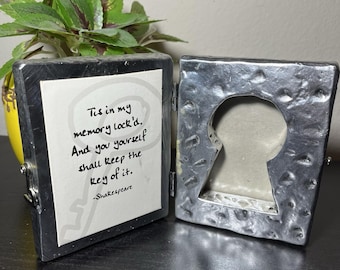 Tis in my
memory lock'd.
And you yourself
shall keep the
key of it.
-Shakespeare